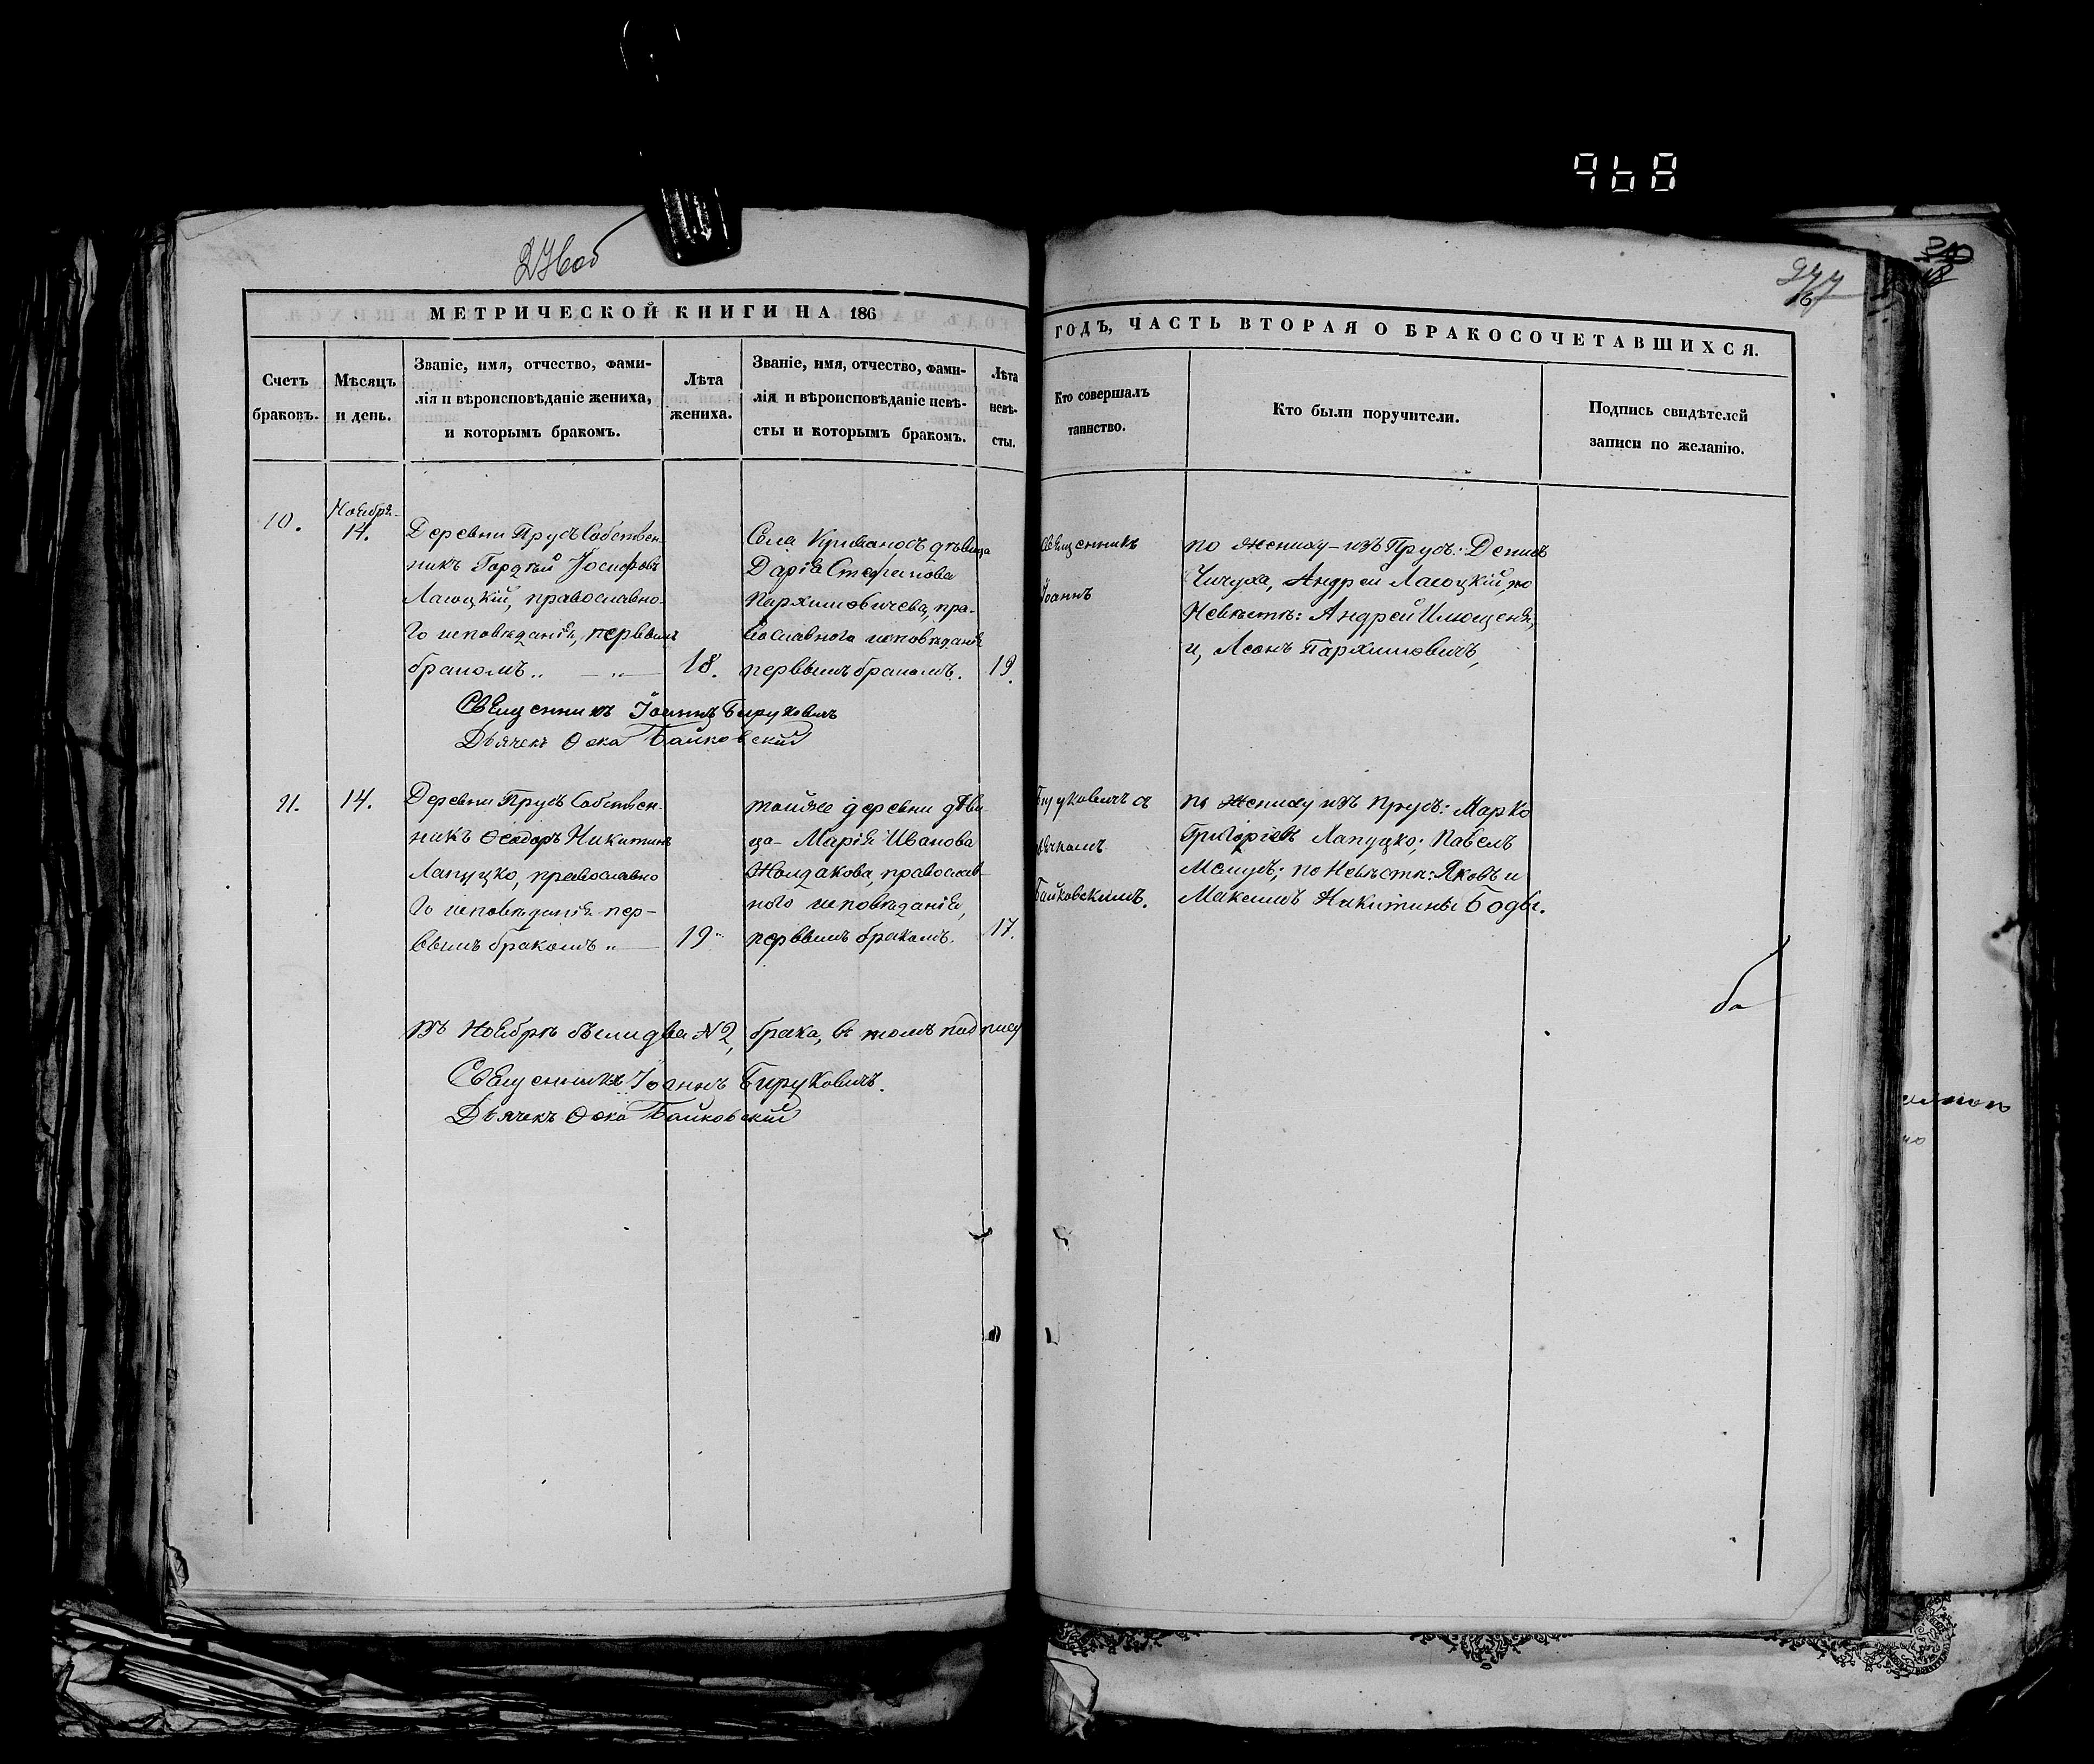 968
276 об
277
МЕТРИЧЕСКОЙ КНИГИ НА 186
ГОДЪ, ЧАСТЬ ВТОРАЯ О БРАКОСОЧЕТАВШИХСЯ.
Счетъ
браковъ.
Мѣсяцъ
и день.
Званіе, имя, отчество, фами-
лія и вѣроисповѣданіе жениха,
и которымъ бракомъ.
Лѣта
жениха.
Званіе, имя, отчество, фами-
лія и вѣроисповѣданіе невѣ-
сты и которымъ бракомъ.
Лѣта
невѣ-
сты.
Кто совершалъ
таинство.
Кто были поручители.
Подпись свидѣтелей
записи по желанію.
10.
Ноября
14.
Деревни Прусъ Собствен-
никъ Гордѣй Іосифовъ
Лагоцкій, православно-
го исповѣданія, первымъ
бракомъ
18.
Села Кривоносъ дѣвица
Дарія Стефанова
Пархимовичева, пра-
вославнаго исповѣданія
первымъ бракомъ.
19.
Священникъ
Іоаннъ
по жениху - изъ Прусъ: Денисъ
Чичуха, Андрей Лагоцкій, по
Невѣстѣ: Андрей
и, Леонъ Пархимовичъ,
Священникъ Іоаннъ Бируковичъ
Дьячекъ Ѳока Байковскій
11.
14.
Деревни Прусъ Собствен-
никъ Ѳеодоръ Никитинъ
Лапуцко, православно
го исповѣданія пер-
вымъ бракомъ
19
тойже деревни дѣви-
ца - Марія Иванова
Жолдакова, православ-
ного исповѣданія,
первымъ бракомъ.
17.
Бируковичъ съ
дьячкомъ
Байковскимъ.
по жениху изъ Прусъ: Марко
Григоріевъ Лапуцко; Павелъ
по Невѣстѣ: Яковъ и
Максимъ Никитины Боды.
въ Ноябрѣ были два № 2, брака, въ томъ подпису
Священникъ Іоаннъ Бируковичъ.
Дьячекъ Ѳока Байковскій